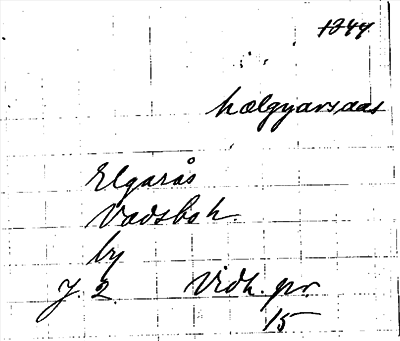 1244
hælgyarsaas
Elgarås
Vadsbo h.
by
J. 2. Vidh. pr.
15